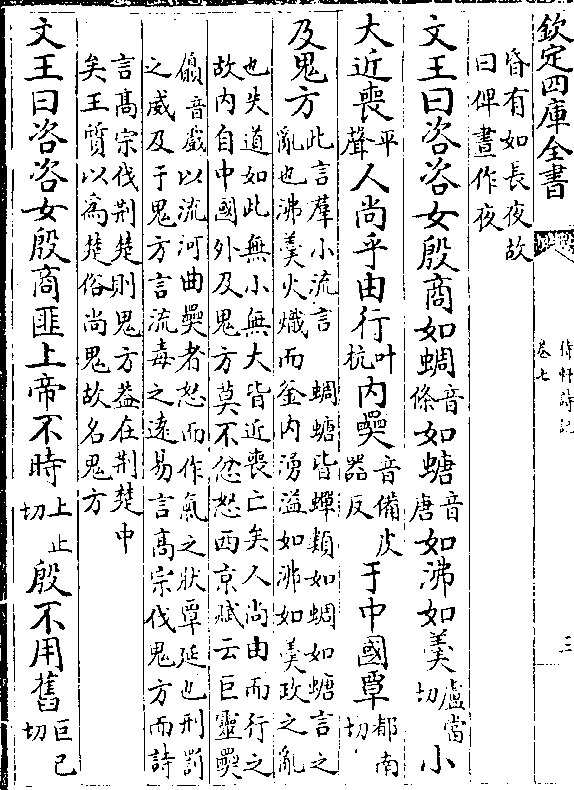 欽定四庫全書
待軒詩記
卷七
三
昏有如長夜故
曰俾晝作夜
文王曰咨咨女殷商如蜩音條如螗音唐如沸如羹盧當切小
大近喪平聲人尚乎由行叶杭內奰音備皮器反于中國覃都南切
及鬼方此言羣小流言 蜩螗皆蟬類如蜩如螗言之
亂也沸羹火熾而釜内湧溢如沸如羹政之亂
也失道如此無小無大皆近喪亡矣人尚由而行之
故内自中國外及鬼方莫不忿怒西京賦云巨靈奰
屭音戲以流河曲奰者怒而作氣之狀覃延也刑罰
之威及于鬼方言流毒之逺易言髙宗伐鬼方而詩
言髙宗伐荆楚則鬼方葢在荆楚中
矣王質以爲楚俗尚鬼故名鬼方
文王曰咨咨女殷商匪上帝不時上止切殷不用舊巨己切